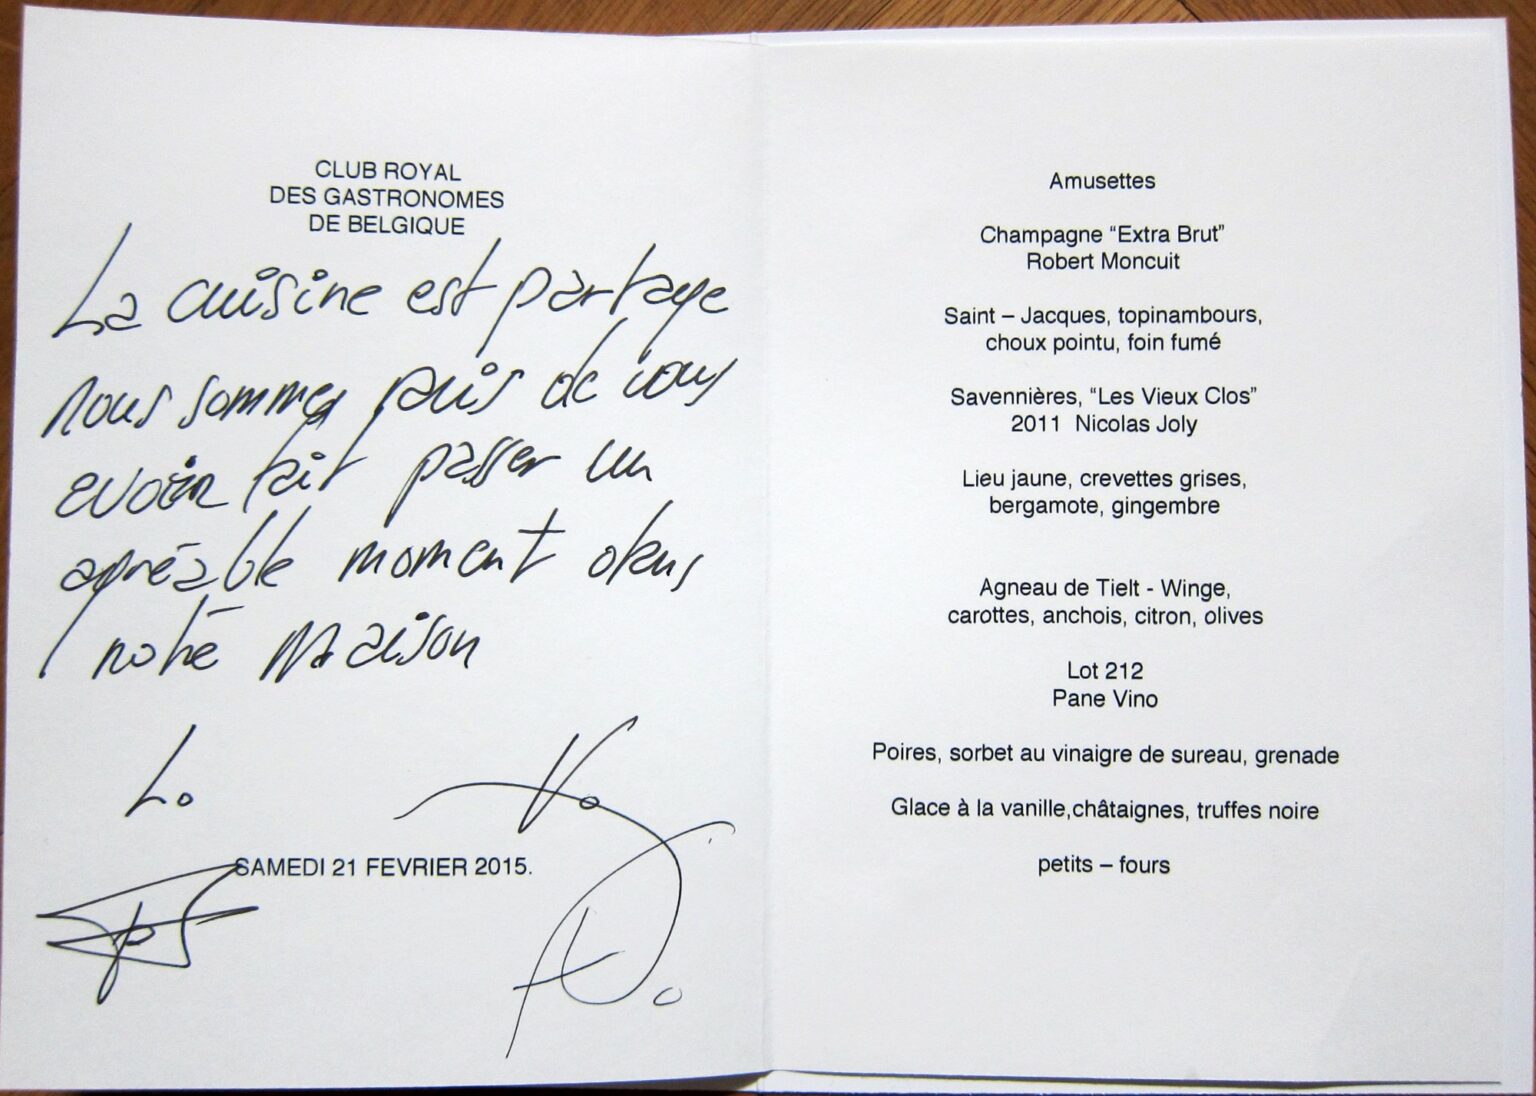 CLUB ROYAL
DES GASTRONOMES
DE BELGIQUE
La cuisine est partage
nous sommes de vous
avoir fait passer un
agréable moment dans
notre Maison
L.
SAMEDI 21 FEVRIER 2015.
Amusettes
Champagne “Extra Brut”
Robert Moncuit
Saint – Jacques, topinambours,
choux pointu, foin fumé
Savennières, “Les Vieux Clos”
2011 Nicolas Joly
Lieu jaune, crevettes grises,
bergamote, gingembre
Agneau de Tielt - Winge,
carottes, anchois, citron, olives
Lot 212
Pane Vino
Poires, sorbet au vinaigre de sureau, grenade
Glace à la vanille,châtaignes, truffes noire
petits – fours